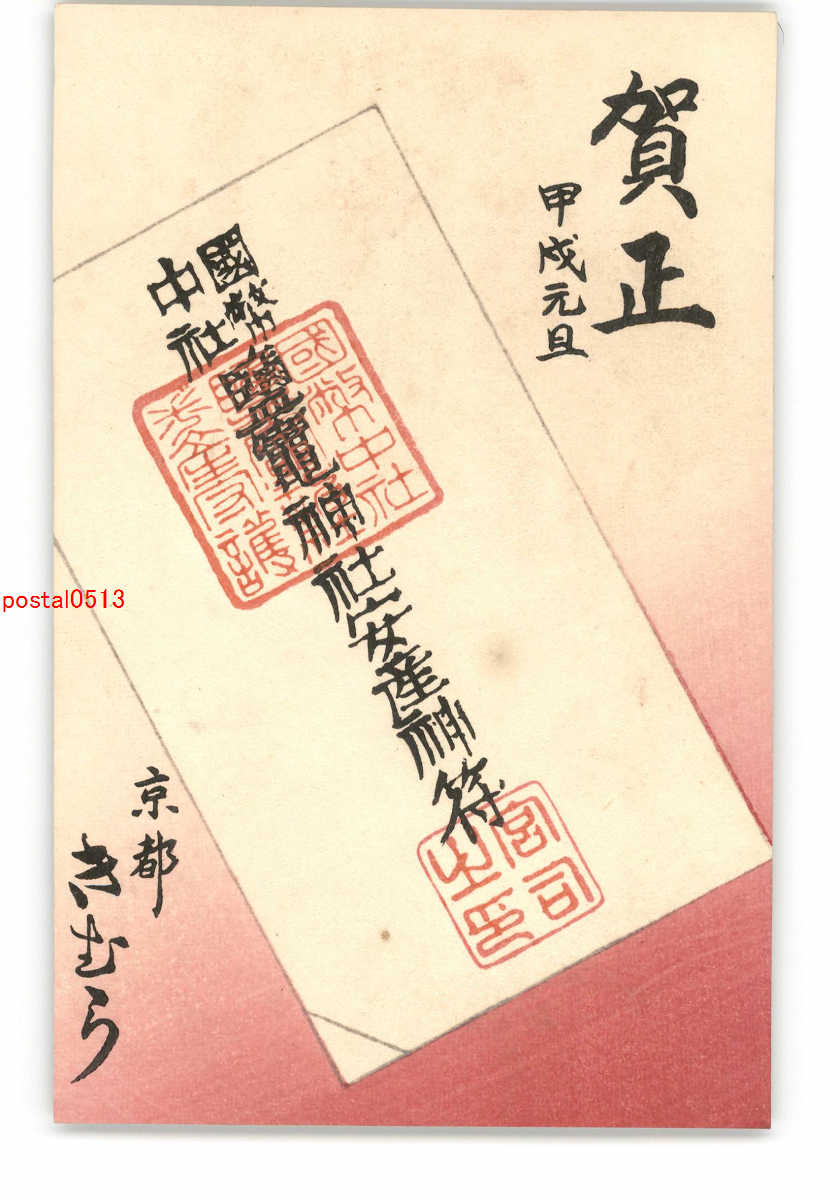 賀正
甲戌元旦
國幣中社鹽竈神社安産神符
國幣中社
宮司之印
京都
きむら
postal0513